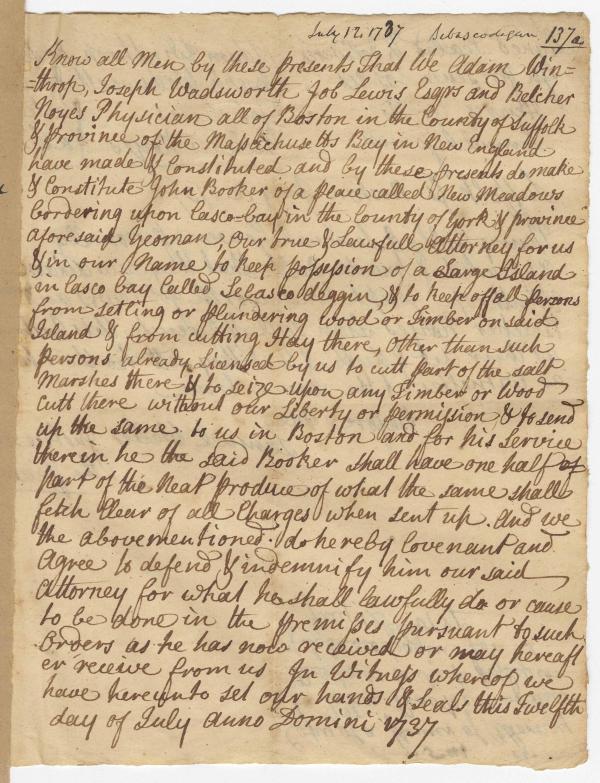 July 12, 1737 Sebascodegan 137a.
Know all Men by these presents That We Adam Win=
=throp, Joseph Wadsworth Job Lewis Esqrs and Belcher
Noyes Physician all of Boston in the County of Suffolk
& Province of the Massachusetts Bay in New England
have made & Constituted and by these presents do make
& Constitute John Booker of a place called New Meadows
bordering upon Casco-bay in the County of York & province
aforesaid Yeoman, Our true & Lawfull Attorney for us
& in our Name to keep possession of a Large Island
in Casco bay called Sebascodeggin, & to keep off all persons
from setling or plundering wood or Timber on said
Island & from cutting Hay there, Other than such
persons already Licensed by us to cutt part of the salt
Marshes there & to seize upon any Timber or Wood
cutt there without our Liberty or permission & to send
up the same to us in Boston and for his service
therein he the said Booker shall have one half of
part of the Neat produce of what the same shall
fetch clear of all Charges when sent up. And we
the abovementioned do hereby Covenant and
Agree to defend & indemnify him our said
Attorney for what he shall lawfully do or cause
to be done in the premisses pursuant to such
Orders as he has now received or may hereaft
er receive from us In Witness whereof we
have hereunto set our hands & Seals this Twelfth
day of July Anno Domini 1737